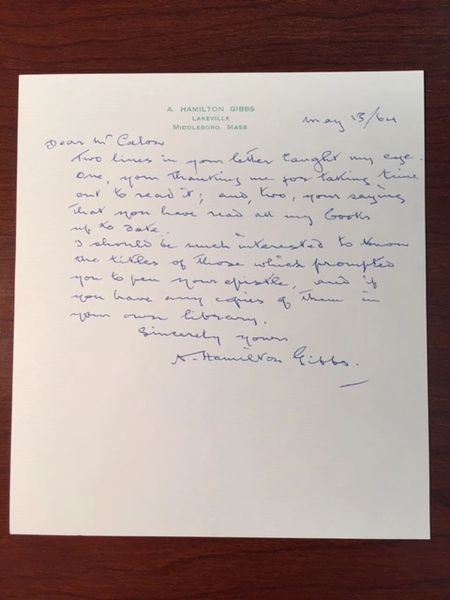 A. HAMILTON GIBBS
LAKEVILLE
MIDDLEBORO, MASS
May 13/64
Dear Mr
Two lines in your letter caught my eye.
One, your thanking me for taking time
out to read it; and, two, your saying
that you have read all my books
up to date.
I should be much interested to know
the titles of those which prompted
you to pen your epistle, and if
you have any copies of them in
your own library.
Sincerely yours
A. Hamilton Gibbs.